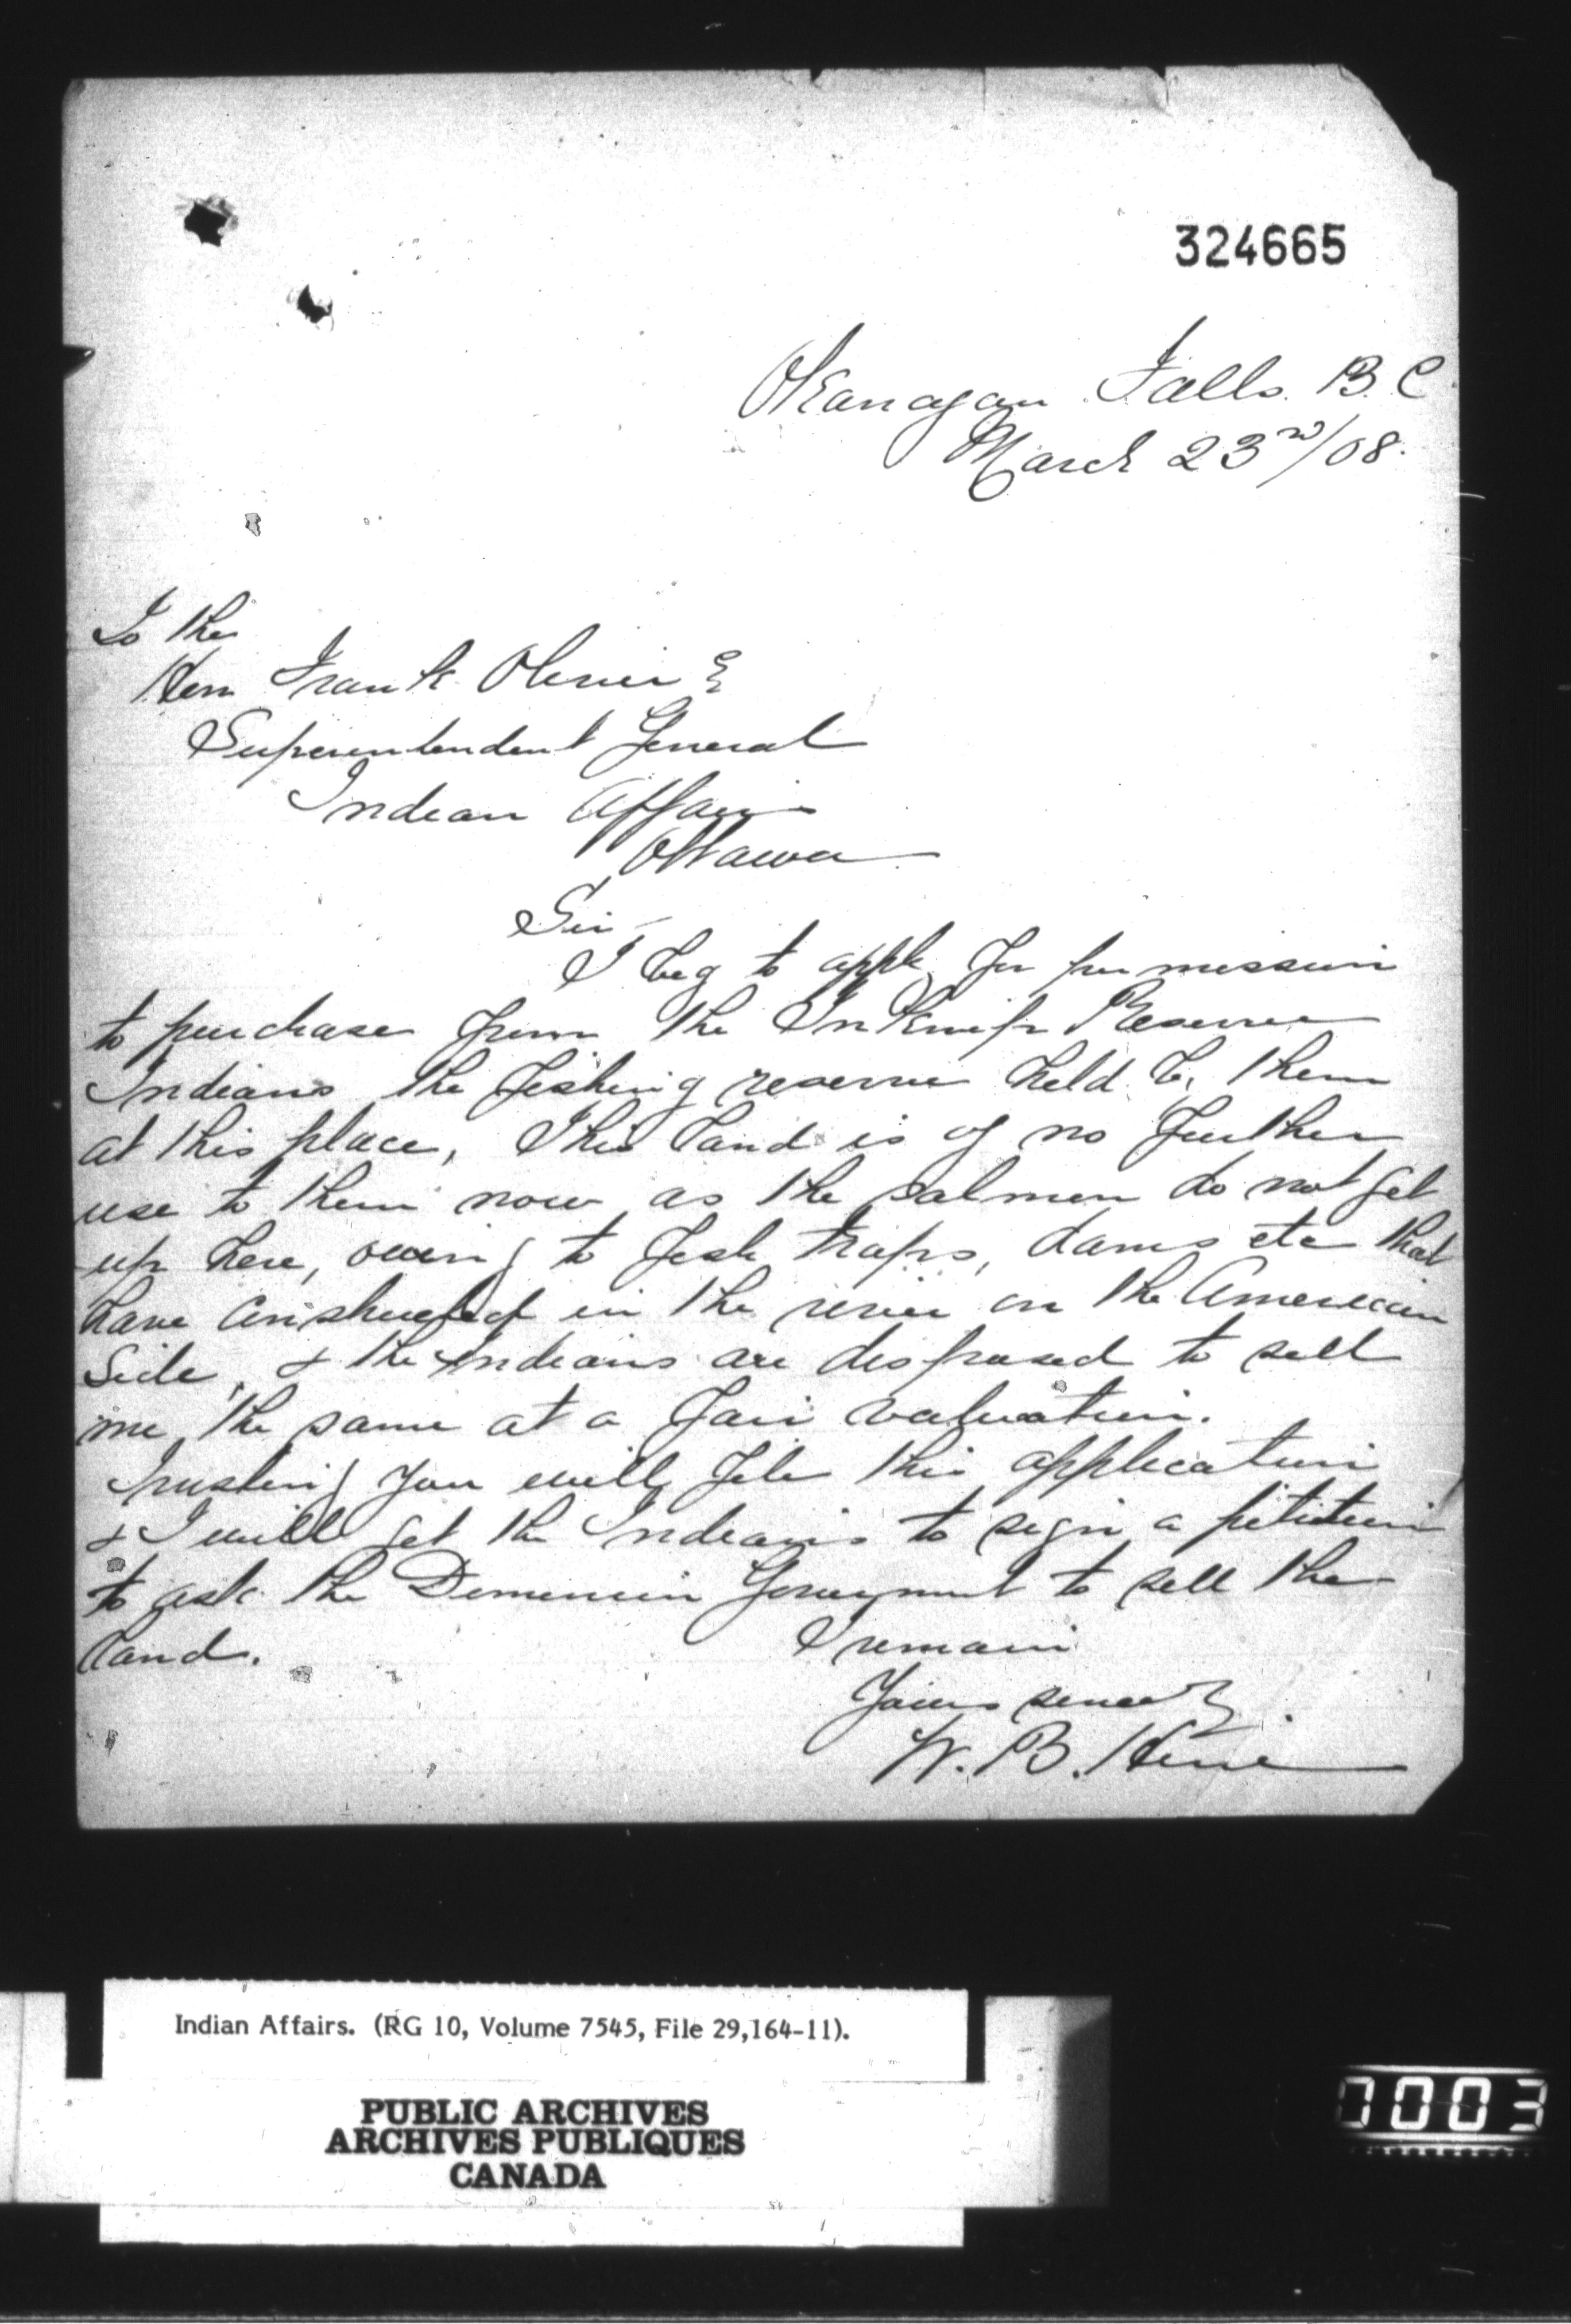 324665
Okanagan Falls. B.C
March 23rd/08.
To the
Hon Frank Oliver
Superentendent General
Indian Affairs
Ottawa
Sir,
I beg to apply for permission
to purchase from the Inkmeep Reserve
Indians the fishing reserve held by them
at this place, This land is of no further
use to them now as the salmon do not get
up here, owing to fish traps, dams etc that
have constructed in the river on the American
side, & the Indians are disposed to sell
me the same at a fair valuation.
Trusting you will file this application
& I will get the Indians to sign a petition
to ask the Dominion Government to sell the
land.
I remain
Yours sincerely
W. B. Hine
Indian Affairs. (RG 10, Volume 7545, File 29,164-11).
PUBLIC ARCHIVES
ARCHIVES PUBLIQUES
CANADA
0003